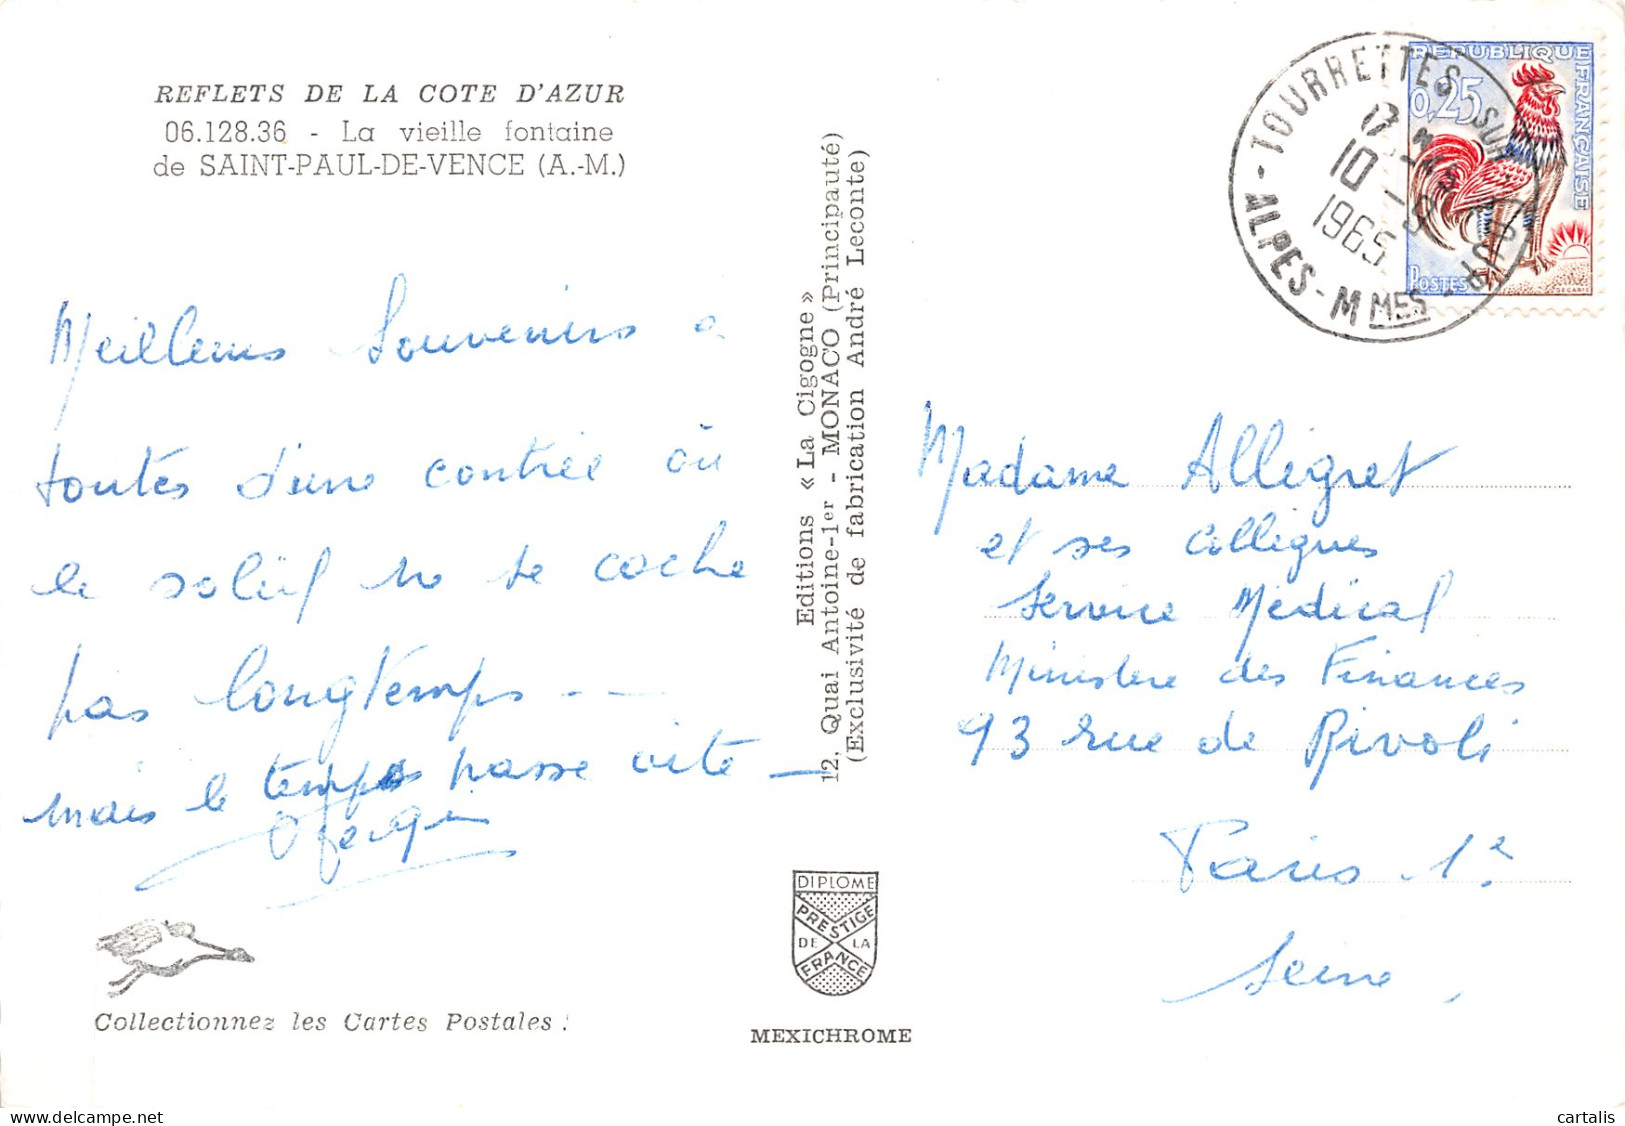 REFLETS DE LA COTE D'AZUR
06.128.36 - La vieille fontaine
de SAINT-PAUL-DE-VENCE (A.-M.)
Meilleurs Souvenirs a
toutes d'une contrée où
le soleil ne se cache
pas longtemps --
mais le temps passe vite -
Collectionnez les Cartes Postales !
Editions « La Cigogne »
12, Quai Antoine-1er - MONACO (Principauté)
(Exclusivité de fabrication André Leconte)
DIPLOME
PRESTIGE
DE LA
FRANCE
MEXICHROME
TOURRETTES - SUR - LOUP -
ALPES - MMES
17 H
10 - 9
1965
REPUBLIQUE FRANÇAISE
0,25
POSTES
DECARIS
Madame Allégret
et ses collègues
Service Médical
Ministère des Finances
93 rue de Rivoli
Paris 1e
Seine
cartalis